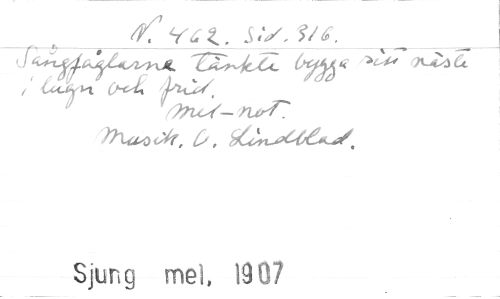 N. 462. Sid. 316.
Sångfåglarne tänkte bygga sitt näste
i lugn och frid.
Mel-not.
Musik. O. Lindblad.
Sjung mel, 1907